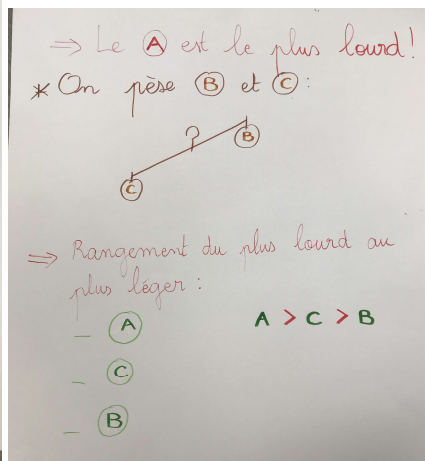 ⇒ Le A est le plus lourd!
* On pèse B et C :
?
B
C
⇒ Rangement du plus lourd au
plus léger :
_ A
A > C > B
_ C
_ B